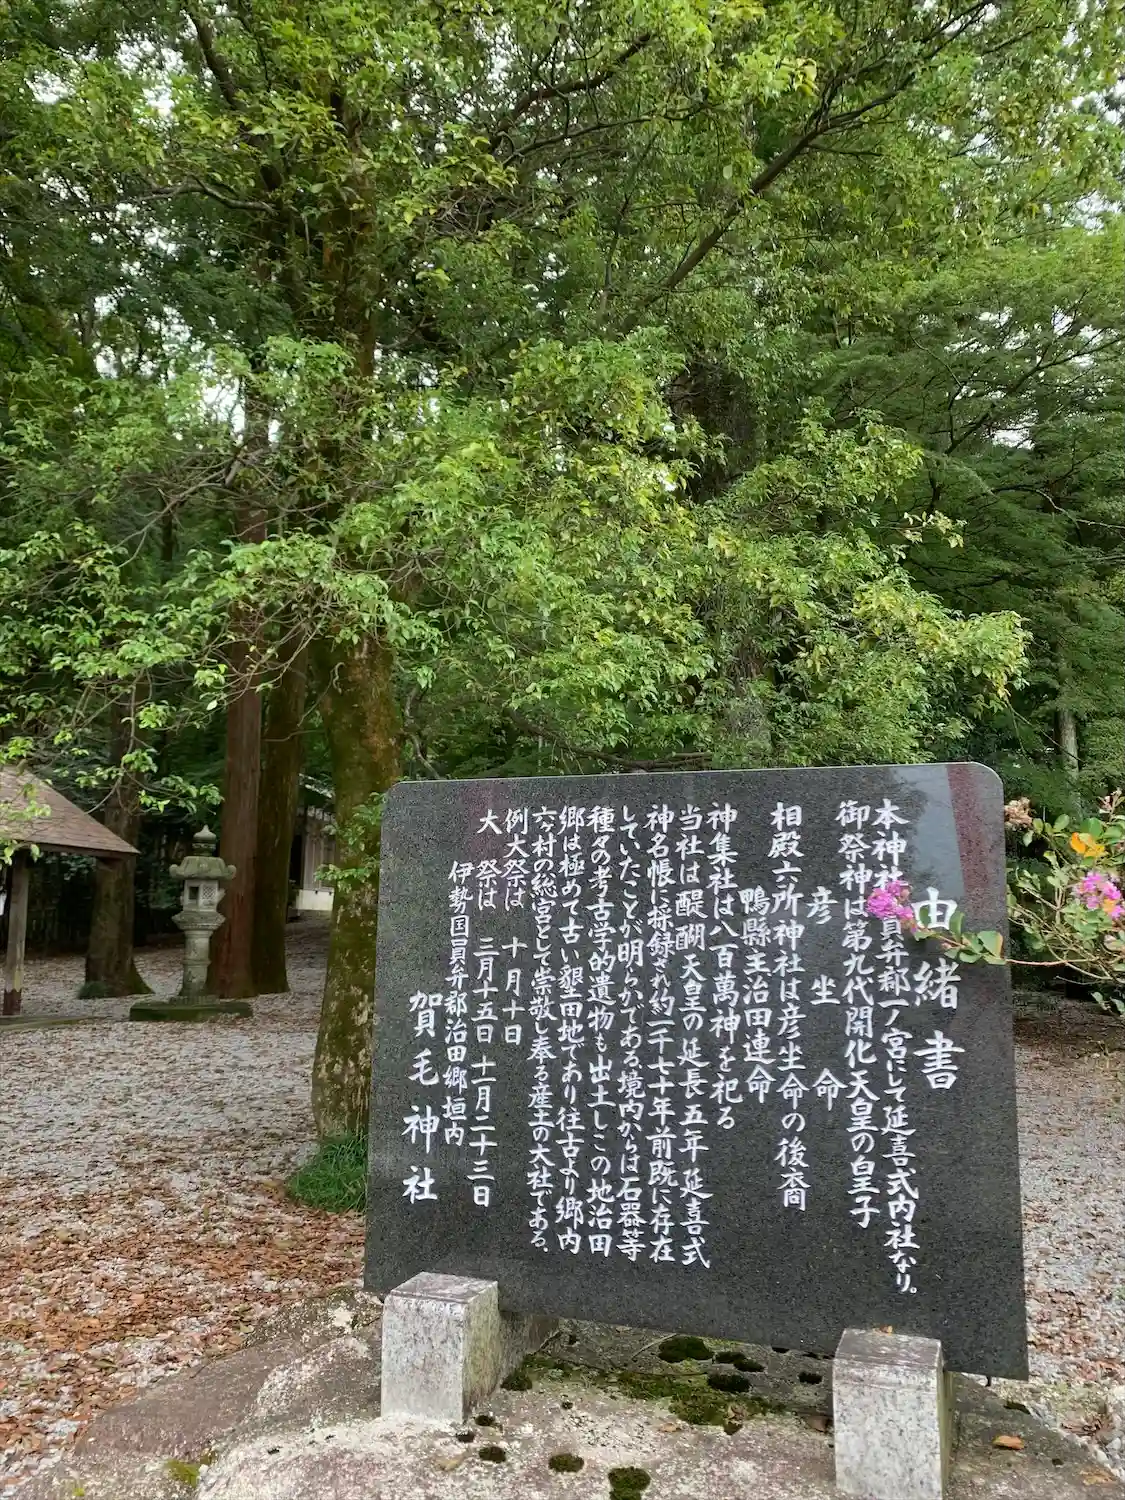 由緒書
本神社員弁郡一ノ宮にして延喜式内社なり。
御祭神は第九代開化天皇の皇子
彦坐命
相殿六所神社は彦坐命の後裔
鴨縣主治田連命
神集社は八百萬神を祀る
当社は醍醐天皇の延長五年延喜式
神名帳に採録され約一千七十年前既に存在
していたことが明らかである境内からは石器等
種々の考古学的遺物も出土しこの地治田
郷は極めて古い懇田地であり往古より郷内
六ヶ村の総宮として崇敬し奉る産土の大社である。
例大祭は 十月十日
大祭は 三月十五日 十一月二十三日
伊勢国員弁郡治田郷垣内
賀毛神社